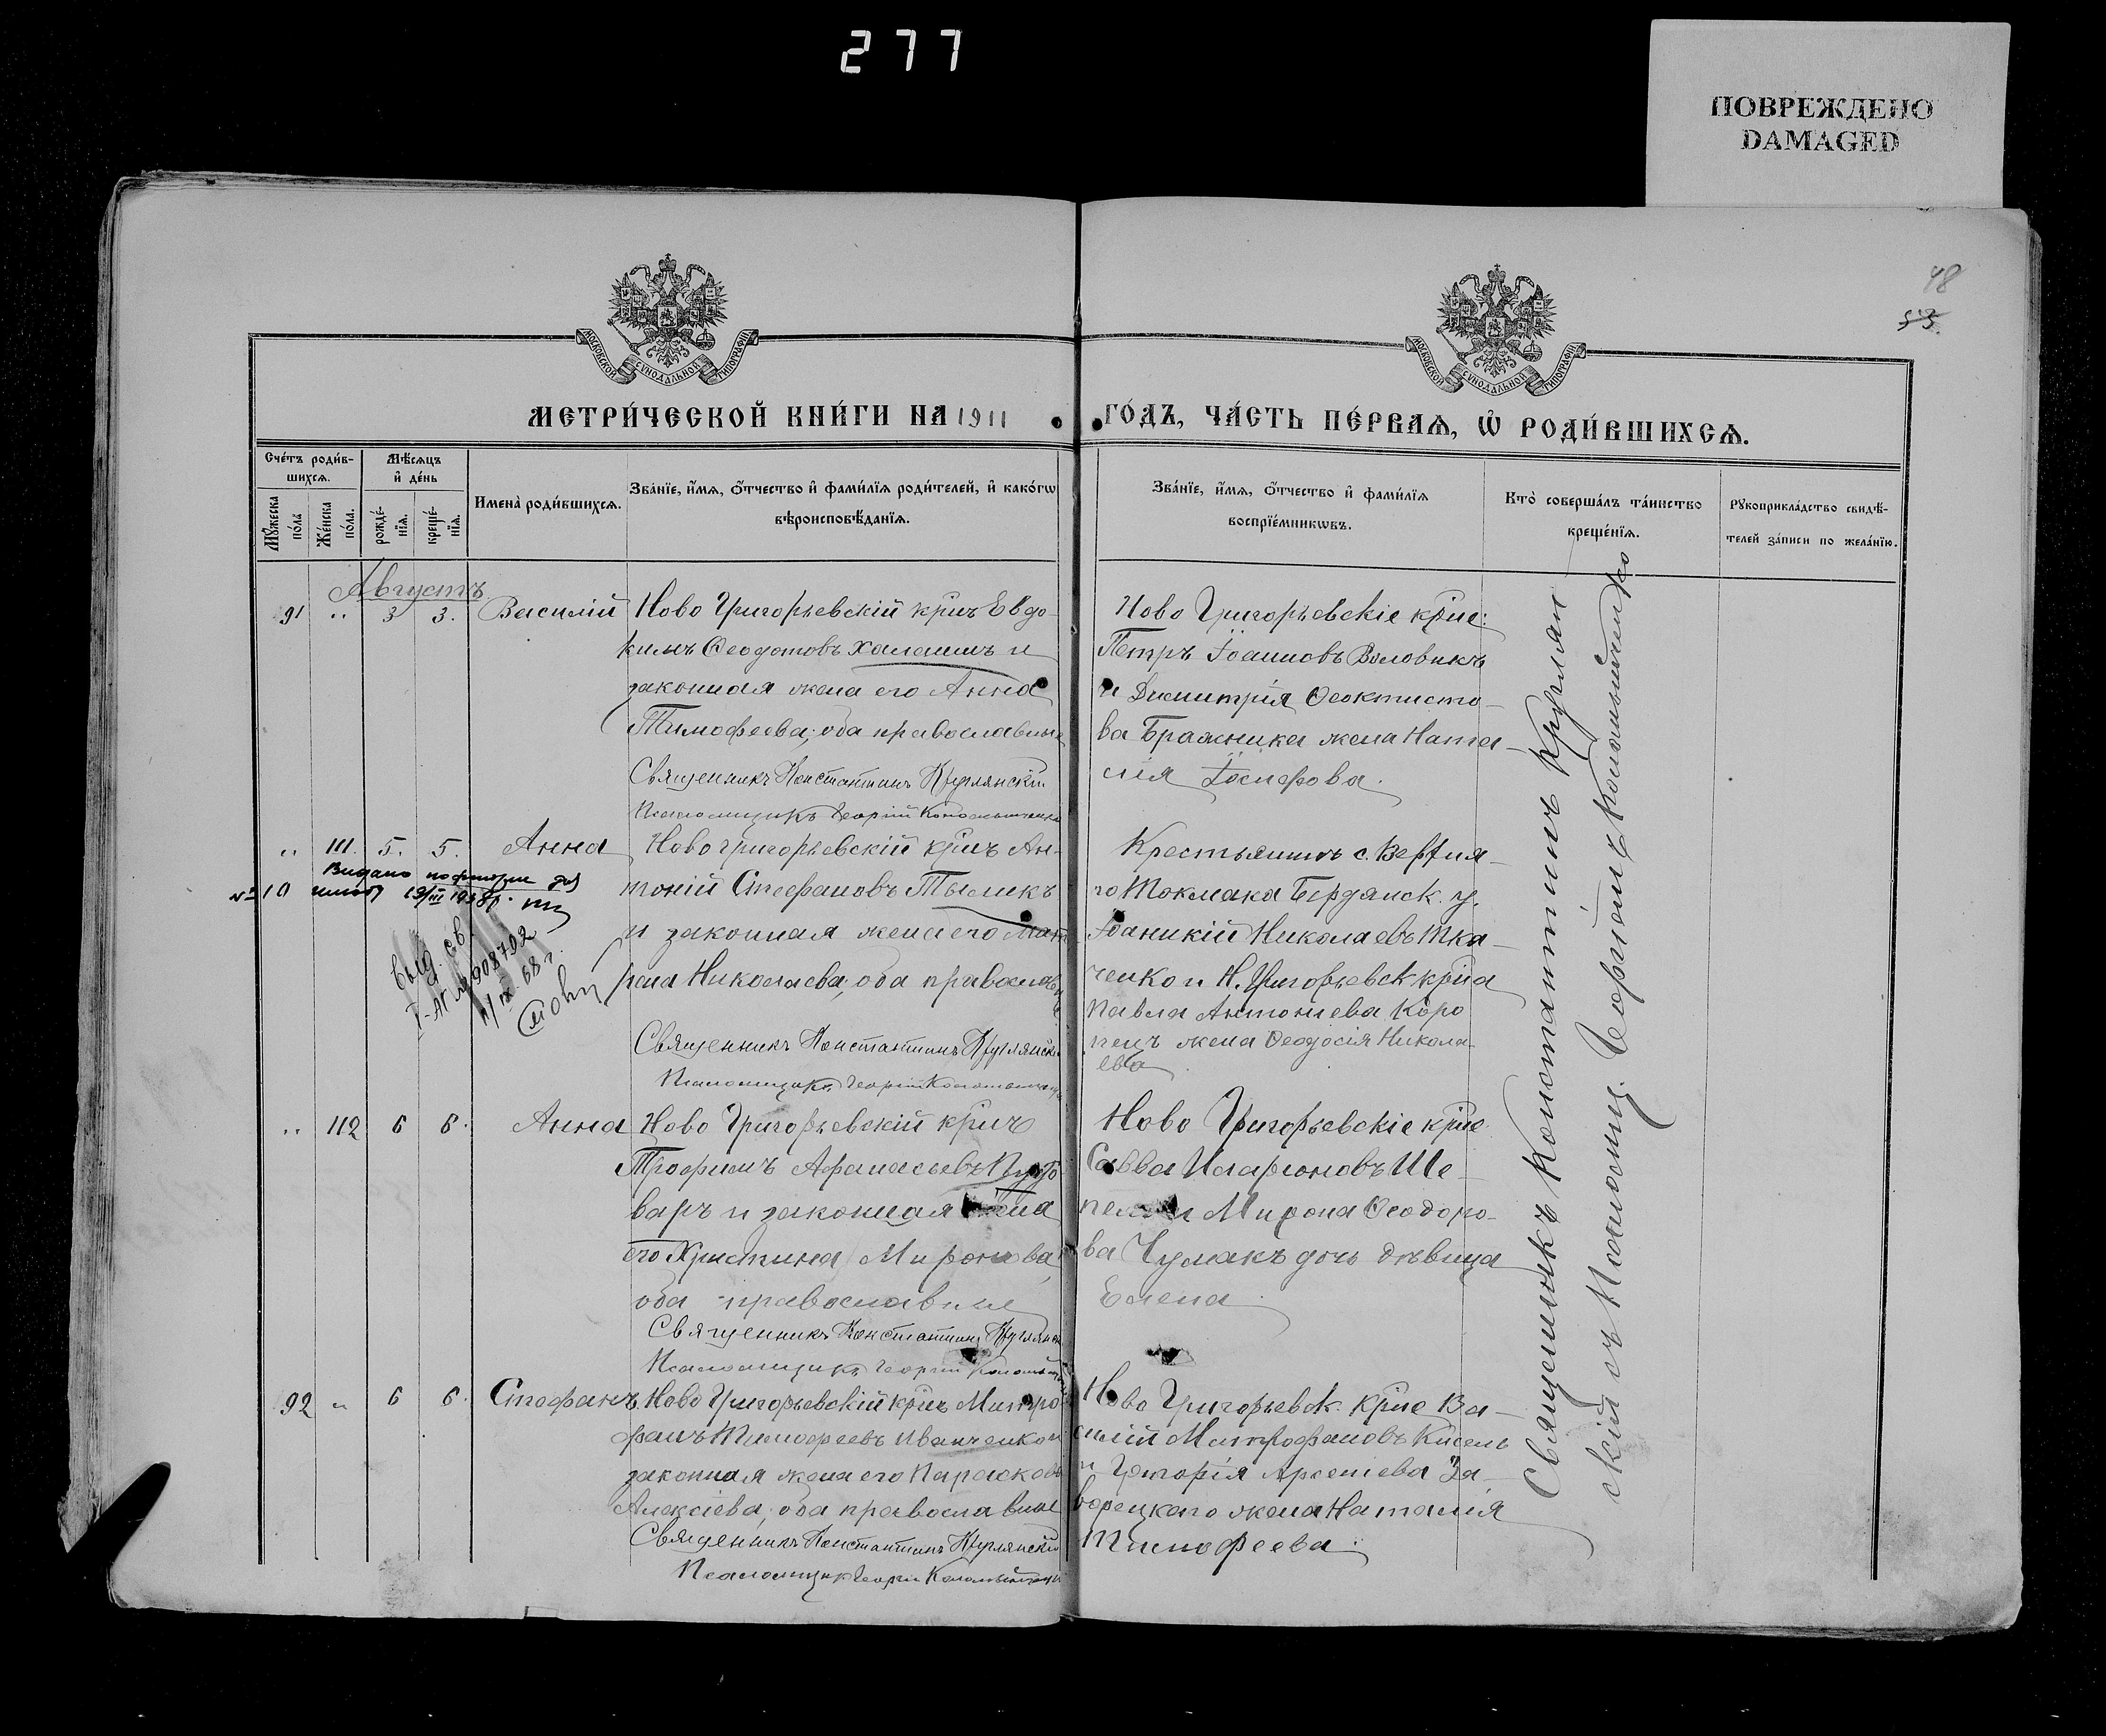 277
ПОВРЕЖДЕНО
DAMAGED
48
53.
МОСКОВСКОЙ СѴНОДАЛЬНОЙ ТИПОГРАФІИ
МОСКОВСКОЙ СѴНОДАЛЬНОЙ ТИПОГРАФІИ
МЕТРИ́ЧЕСКОЙ КНИ́ГИ НА 1911 ГО́ДЪ, ЧА́СТЬ ПЕ́РВАѦ, Ѡ҆ РОДИ́ВШИХСѦ.
Сче́тъ роди́в-
шихсѧ.
Мѣ́сѧцъ
и҆ де́нь
Мꙋ́жеска
по́ла
Же́нска
по́ла.
рожде́-
нїѧ.
креще́-
нїѧ.
Имена̀ роди́вшихсѧ.
Зва́нїе, и҆́мѧ, ѻ҆́тчество и҆ фами́лїѧ роди́телей, и҆ како́гѡ
вѣроисповѣ́данїѧ.
Зва́нїе, и҆́мѧ, ѻ҆́тчество и҆ фами́лїѧ
воспрїе́мникѡвъ.
Кто̀ соверша́лъ та́инство
креще́нїѧ.
Рꙋкоприкла́дство свидѣ́-
телей за́писи по жела́нїю.
Августъ
91 " 3 3. Василій
Ново Григорьевскій кр̃нъ Евдо-
кимъ Ѳеодотовъ Халаимъ и
законная жена его Анна
Тимофеева; оба православные
Священникъ Константинъ Круглянскій
Псаломщикъ Георгій Коломыйченко
Ново Григорьевскіе кр̃не:
Петръ Іоанновъ Воловикъ
и Димитрія Ѳеоктисто-
ва Бражника жена Ната-
лія Іосифова.
" 111. 5. 5. Анна
№ 10
19/III 1938
выд. св.
908792
68 г.
Ново Григорьевскій кр̃нъ Ан-
тоній Стефановъ Тыликъ
и законная жена его Мат
рона Николаева; оба православные
Священникъ Константинъ Круглянскій
Псаломщикъ Георгій Коломыйченко
Крестьянинъ с. Верхня-
го Токмака Бердянск. у.
Іоаникій Николаевъ Тка-
ченко и Н. Григорьевск кр̃на
Павла Антониева Коро
пецъ жена Ѳеодосія Никола-
ева
" 112 6 6. Анна
Ново Григорьевскій кр̃нъ
Трофимъ Афанасьевъ
варъ и законная жена
его Христина Миронова,
оба православные
Священникъ Константинъ Круглянскій
Псаломщикъ Георгій Коломыйченко
Ново Григорьевскіе кр̃не
Савва Иларіоновъ Ше-
и Мирона Ѳеодоро-
ва Чумакъ дочь дѣвица
Елена.
92 " 6 6. Стефанъ
Ново Григорьевскій кр̃нъ Митро
фанъ Тимофеевъ Иванченко и
законная жена его Параскева
Алексіева; оба православные
Священникъ Константинъ Круглянскій
Псаломщикъ Георгій Коломыйченко
Ново Григорьевск. кр̃не Ва-
силій Митрофановъ Кисель
и Григорія Арсениева За-
ворецкаго жена Наталія
Тимофеева.
Священникъ Константинъ Круглян
скій съ Псаломщ. Георгіемъ Коломыйченко